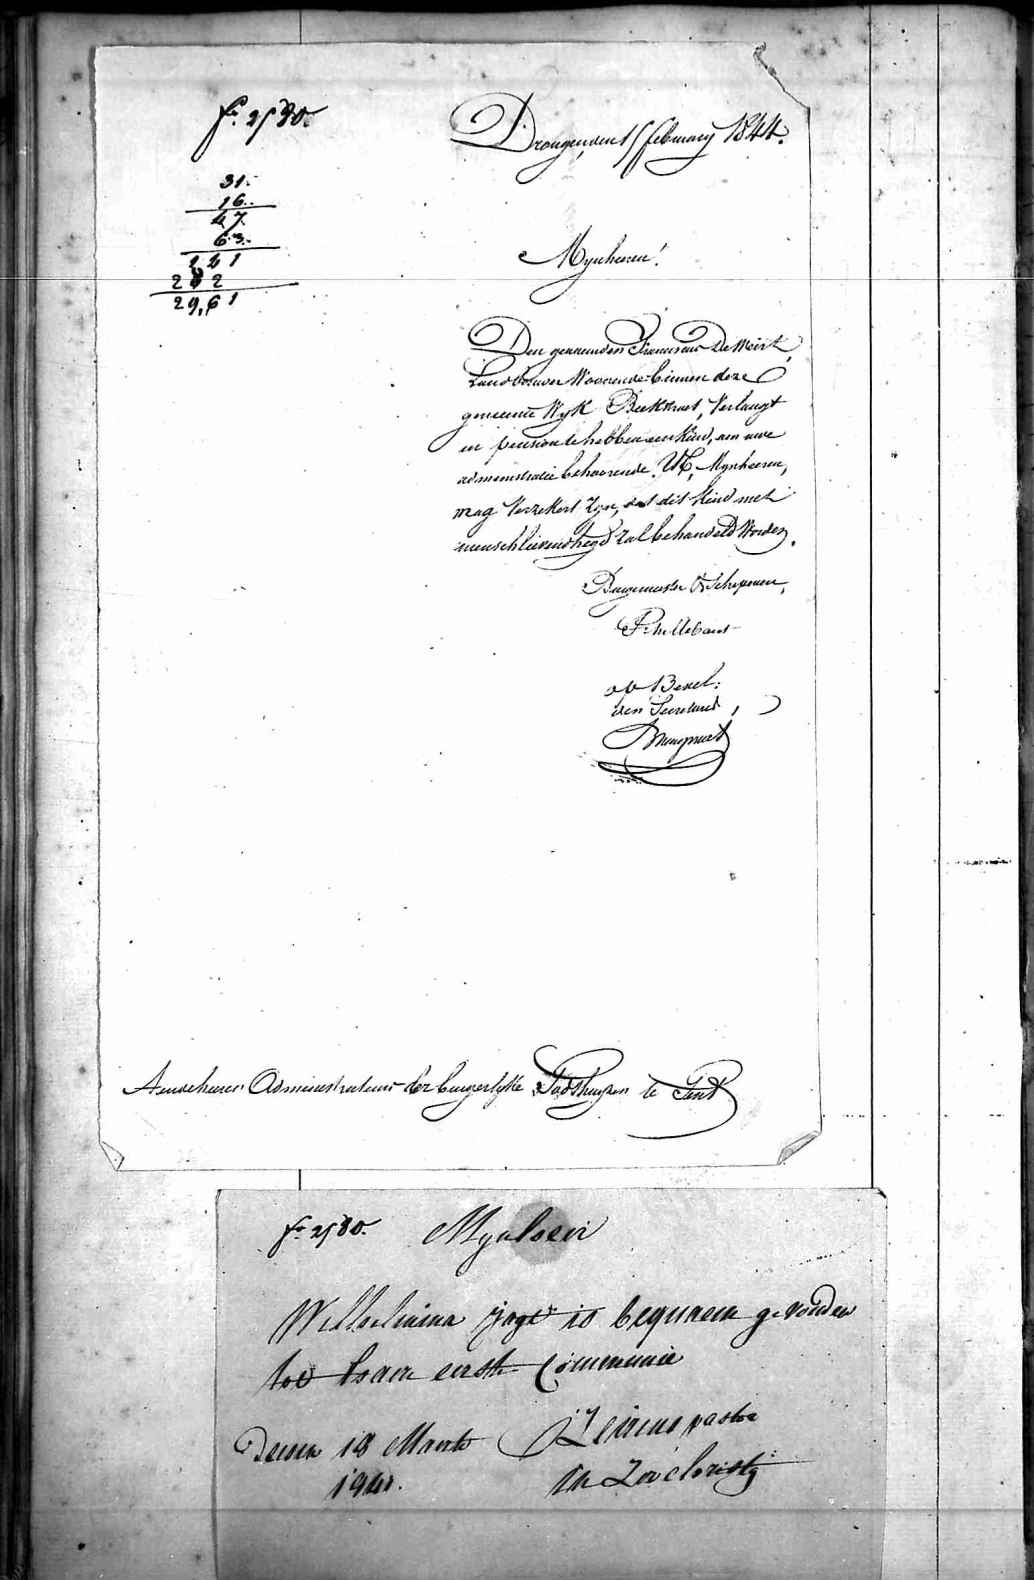 fo. 2580.
31.
16.
47.
63.
141
282
29,61
Drongen den 15 february 1844.
Mynheeren!
Den genaemden Franciscus De Weirt,
Landbouwer Woonende binnen deze
gemeente Wyk Beekstraet, Verlangt
in pension te hebben een kind, aen uwe
administratie behoorende. UE, Mynheeren,
mag Verzekert Zyn, dat dit kind met
menschlievendheyd Zal behandeld Worden.
Burgemeester & Schepenen,
op Bevel:
den Secretaris,
Aen de heeren Administrateurs der burgerlyke Godshuyzen te Gend
fo 2580.
Mynheer
Wilhelmina is bequaem gevonden
tot haer eerste Communie
18 Maerte
pastor
in